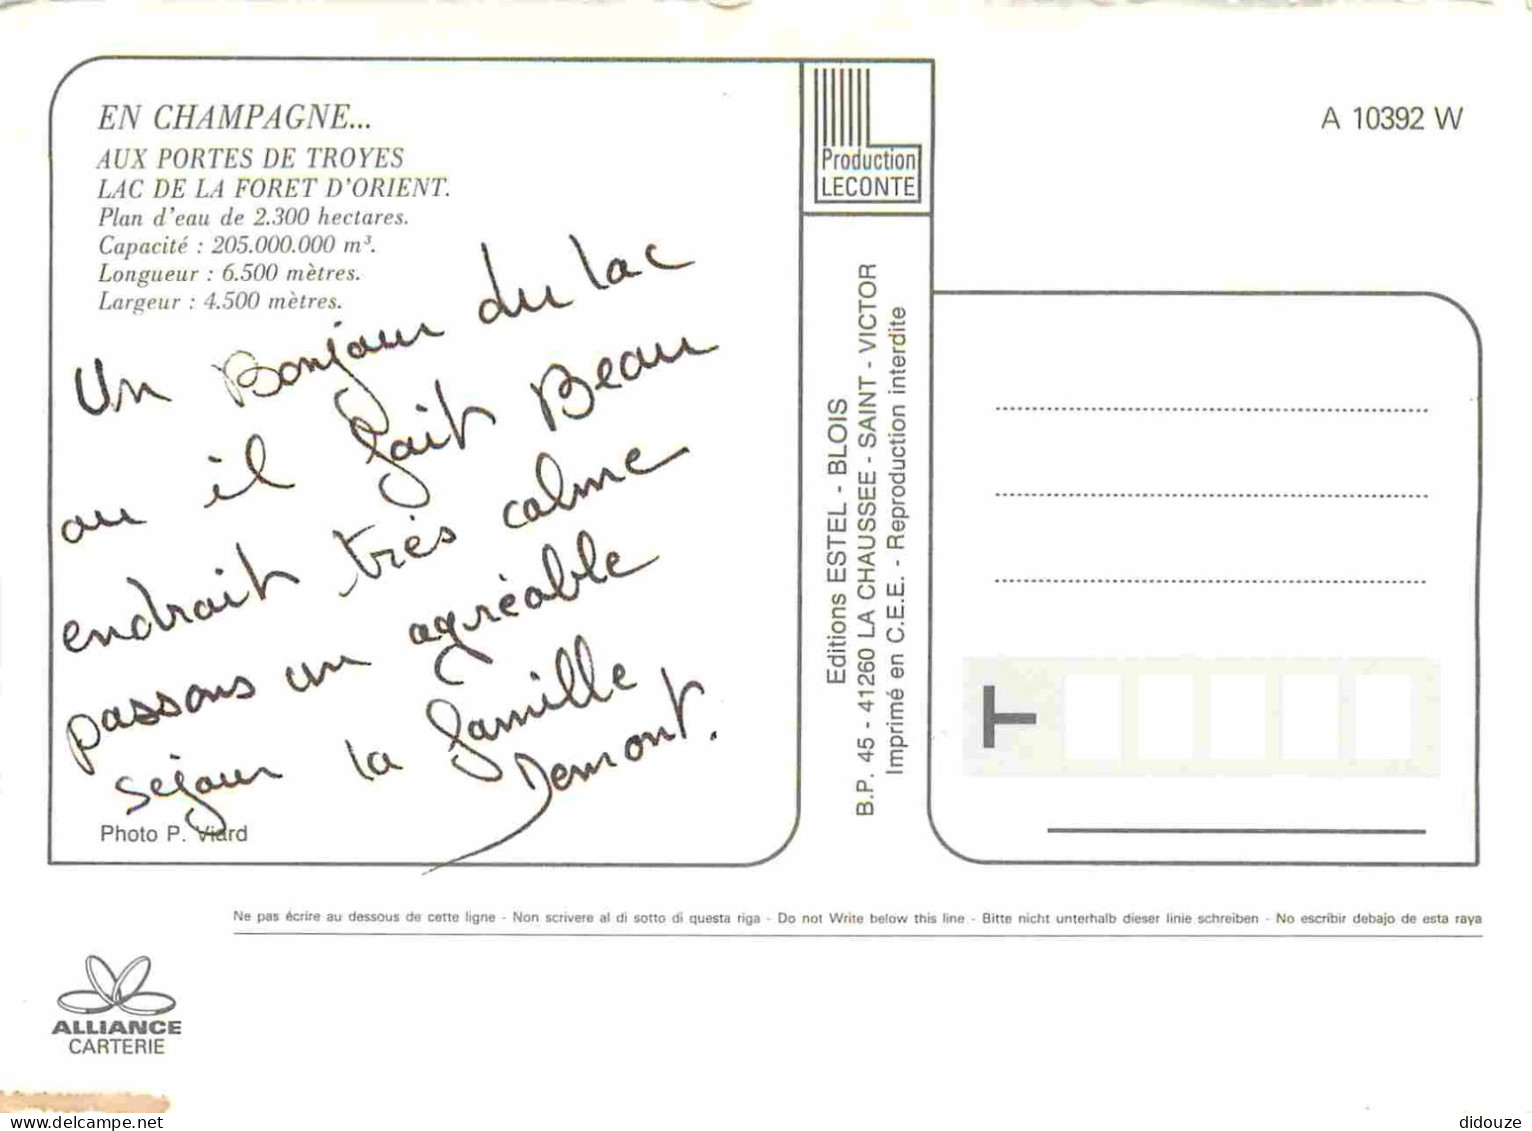 EN CHAMPAGNE...
AUX PORTES DE TROYES
LAC DE LA FORET D'ORIENT.
Plan d'eau de 2.300 hectares.
Capacité : 205.000.000 m³.
Longueur : 6.500 mètres.
Largeur : 4.500 mètres.
Un Bonjour du lac
ou il fait Beau
endroit très calme
passons un agréable
séjour la famille
Demont.
Photo P. Viard
Production
LECONTE
Editions ESTEL - BLOIS
B.P. 45 - 41260 LA CHAUSSEE - SAINT - VICTOR
Imprimé en C.E.E. - Reproduction interdite
A 10392 W
T
Ne pas écrire au dessous de cette ligne - Non scrivere al di sotto di questa riga - Do not Write below this line - Bitte nicht unterhalb dieser linie schreiben - No escribir debajo de esta raya
ALLIANCE
CARTERIE
delcampe.net
didouze